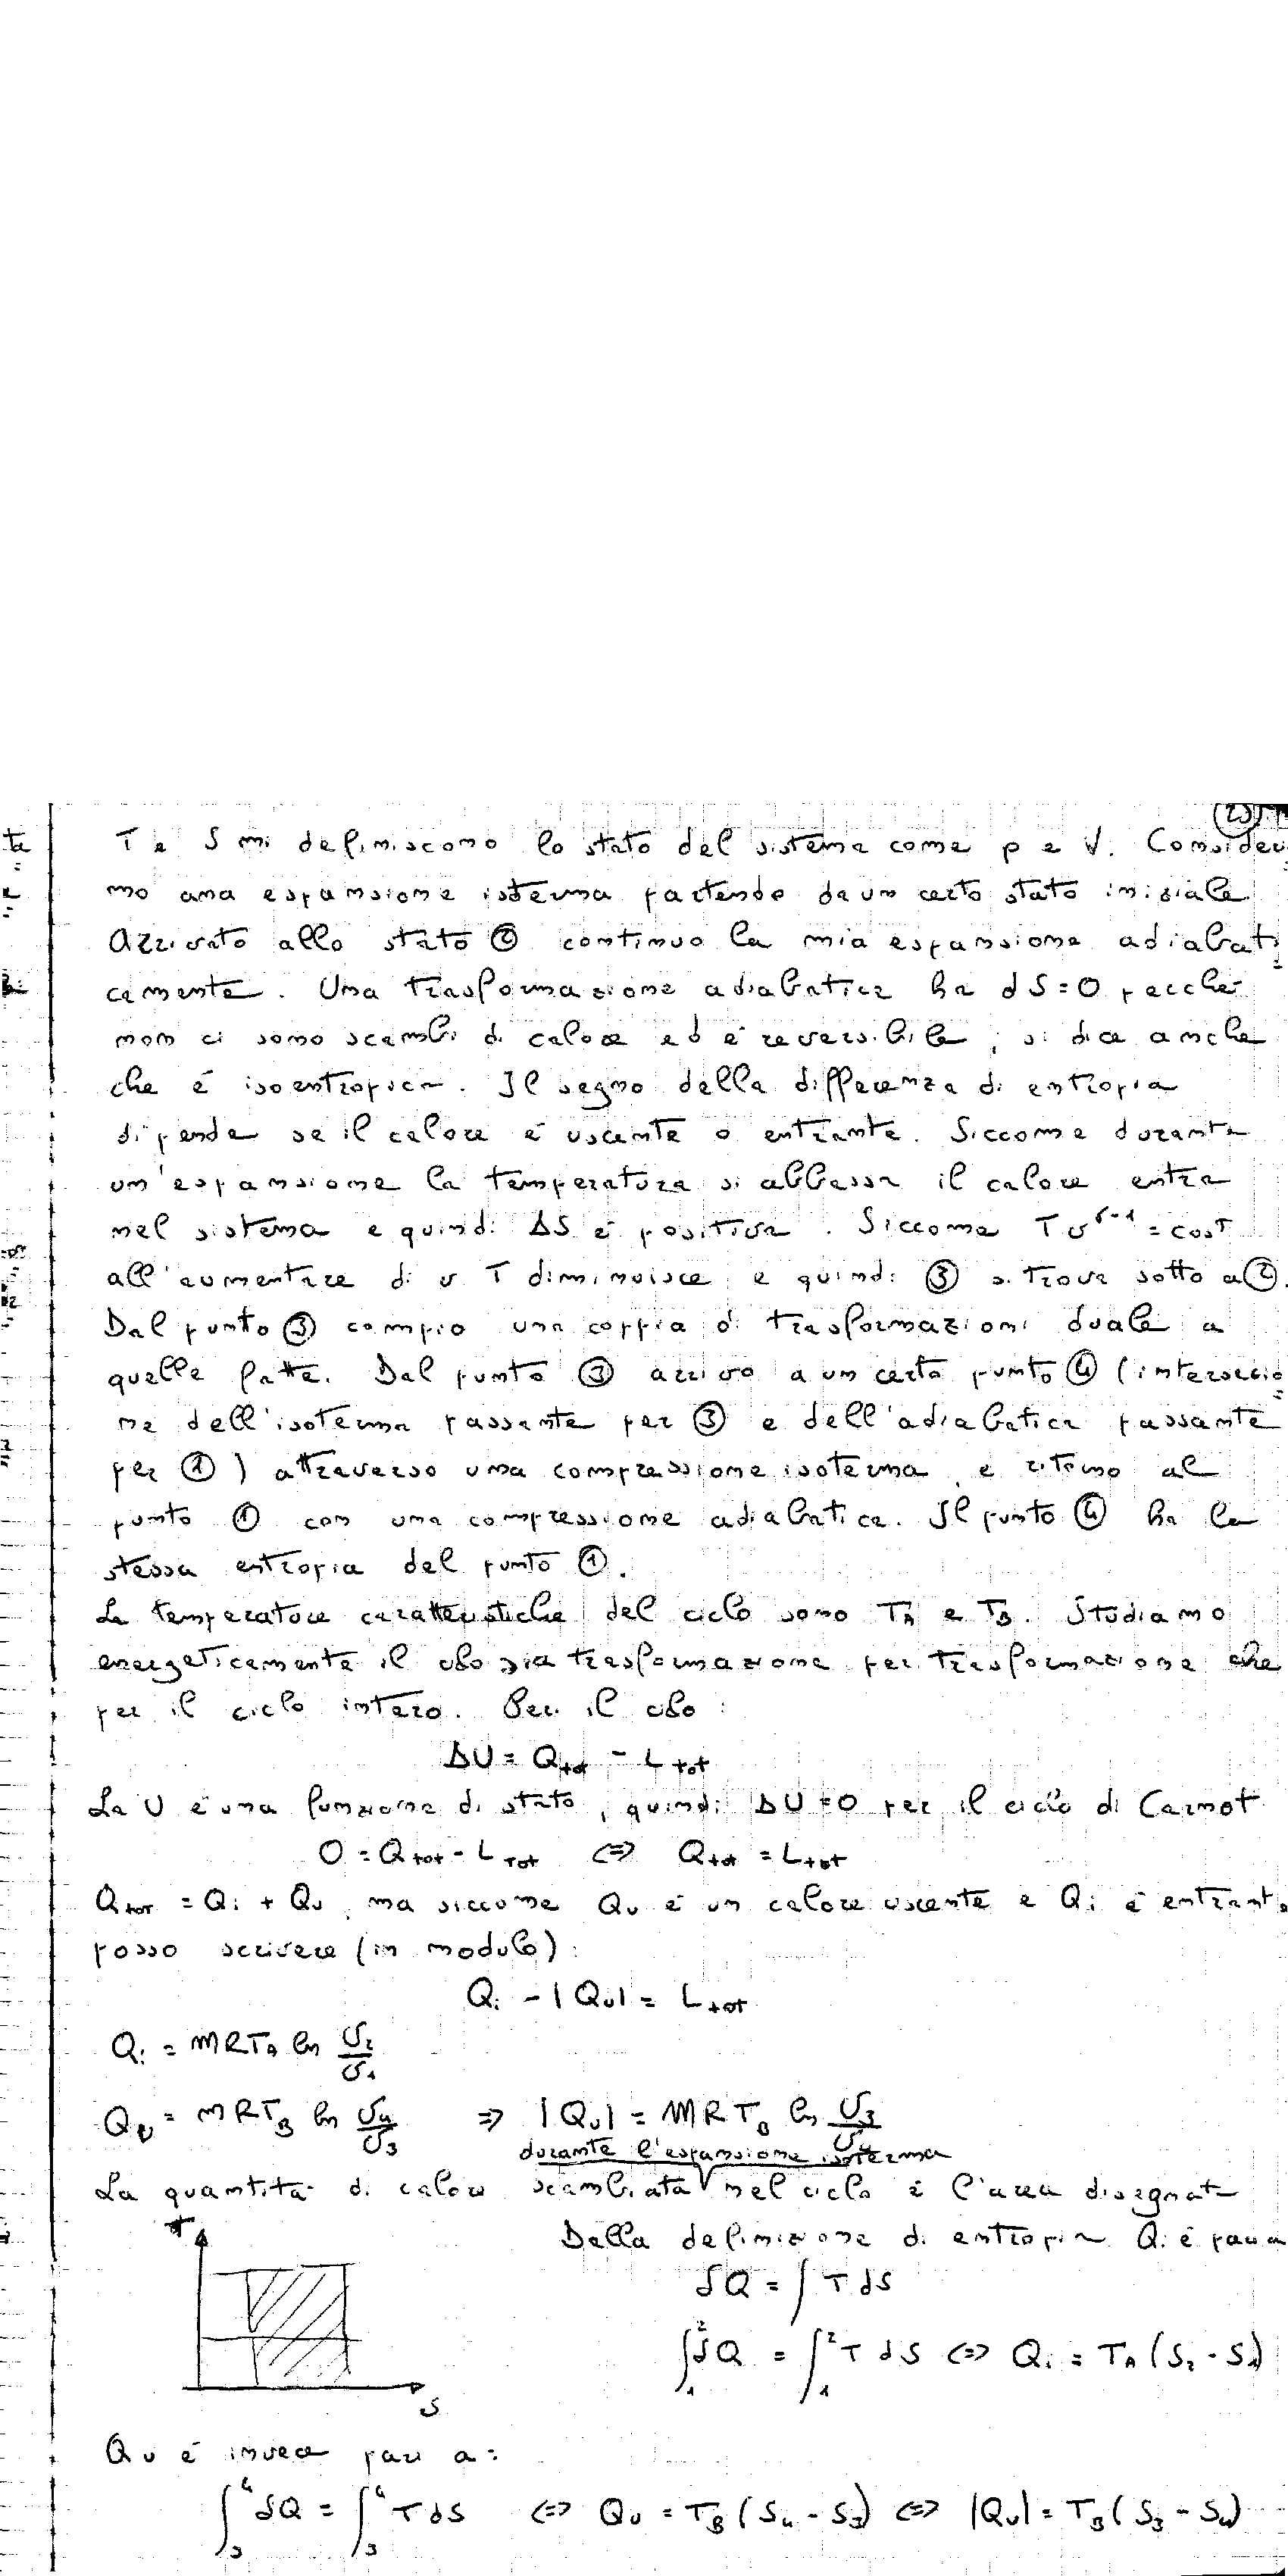 23
ta T e S mi definiscono lo stato del sistema come p e V. Consider
mo una espansione isoterma partendo da un certo stato iniziale.
Arrivato allo stato ② continuo la mia espansione adiabati
camente. Una trasformazione adiabatica ha dS=0 perché
non ci sono scambi di calore ed è reversibile, si dice anche
che è isoentropica. Il segno della differenza di entropia
dipende se il calore è uscente o entrante. Siccome durante
un'espansione la temperatura si abbassa il calore entra
nel sistema e quindi ΔS è positiva. Siccome Tv^γ-1 = cost
all'aumentare di v T diminuisce e quindi ③ si trova sotto a ②.
Dal punto ③ compio una coppia di trasformazioni duale a
quelle fatte. Dal punto ③ arrivo a un certo punto ④ (intersezio
ne dell'isoterma passante per ③ e dell'adiabatica passante
per ①) attraverso una compressione isoterma e ritorno al
punto ① con una compressione adiabatica. Il punto ④ ha la
stessa entropia del punto ①.
Le temperature caratteristiche del ciclo sono TA e TB. Studiamo
energeticamente il ciclo sia trasformazione per trasformazione che
per il ciclo intero. Per il ciclo:
ΔU = Qtot - Ltot
La U è una funzione di stato, quindi ΔU=0 per il ciclo di Carnot
0 = Qtot - Ltot <=> Qtot = Ltot
Qtot = Qi + Qu, ma siccome Qu è un calore uscente e Qi è entrante
posso scrivere (in modulo):
Qi - |Qu| = Ltot
Qi = MRTA ln v2/v1
Qu = MRTB ln v4/v3 => |Qu| = MRTB ln v3/v4
durante l'espansione isoterma
La quantità di calore scambiata nel ciclo è l'area disegnat
T
Dalla definizione di entropia Qi è pari a
δQ = ∫ T dS
∫₁² δQ = ∫₁² T dS <=> Qi = TA (S2 - S1)
S
Qu è invece pari a:
∫₃⁴ δQ = ∫₃⁴ T dS <=> Qu = TB (S4 - S3) <=> |Qu| = TB (S3 - S4)